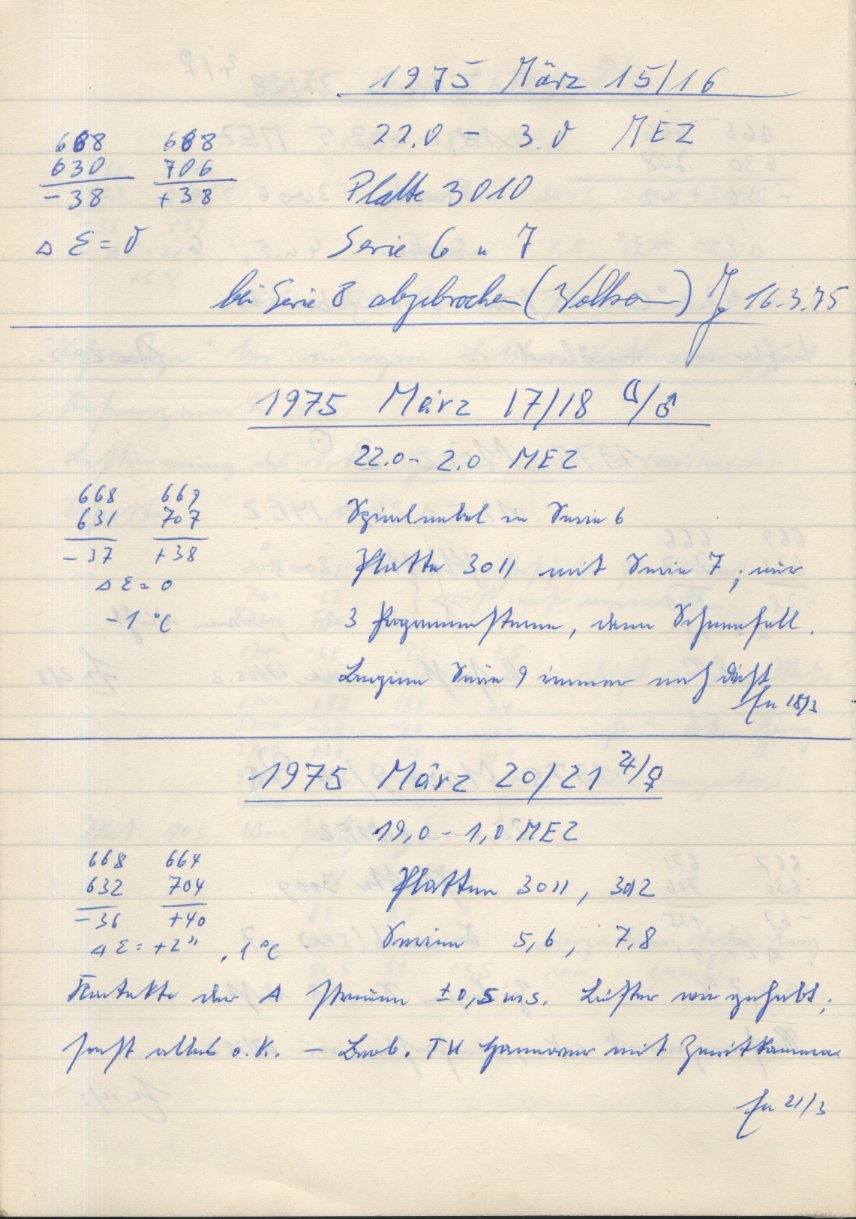 1975 März 15/16
668 668 22.0 - 3.0 MEZ
630 706
-38 +38 Platte 3010
Δ Σ = 0 Serie 6 u 7
bei Serie 8 abgebrochen (Wolken) 16.3.75
1975 März 17/18 ☾/♂
22.0 - 2.0 MEZ
668 669
631 707 Spiralnebel in Serie 6
-37 +38 Platte 3011 mit Serie 7; nur
Δ Σ = 0
-1 °C 3 Programmsterne, dann Schneefall.
Beginn Serie 9 immer noch dicht
18/3
1975 März 20/21 ♃/♀
19,0 - 1,0 MEZ
668 664
632 704 Platten 3011, 3012
-36 +40
Δ Σ = +2" , 1 °C Serien 5,6, 7,8
Kontakte der A streuen ± 0,5 ms. Lüfter wie gehabt;
sonst alles o.K. — Beob. TU Hannover mit Zweitkamera
21/3